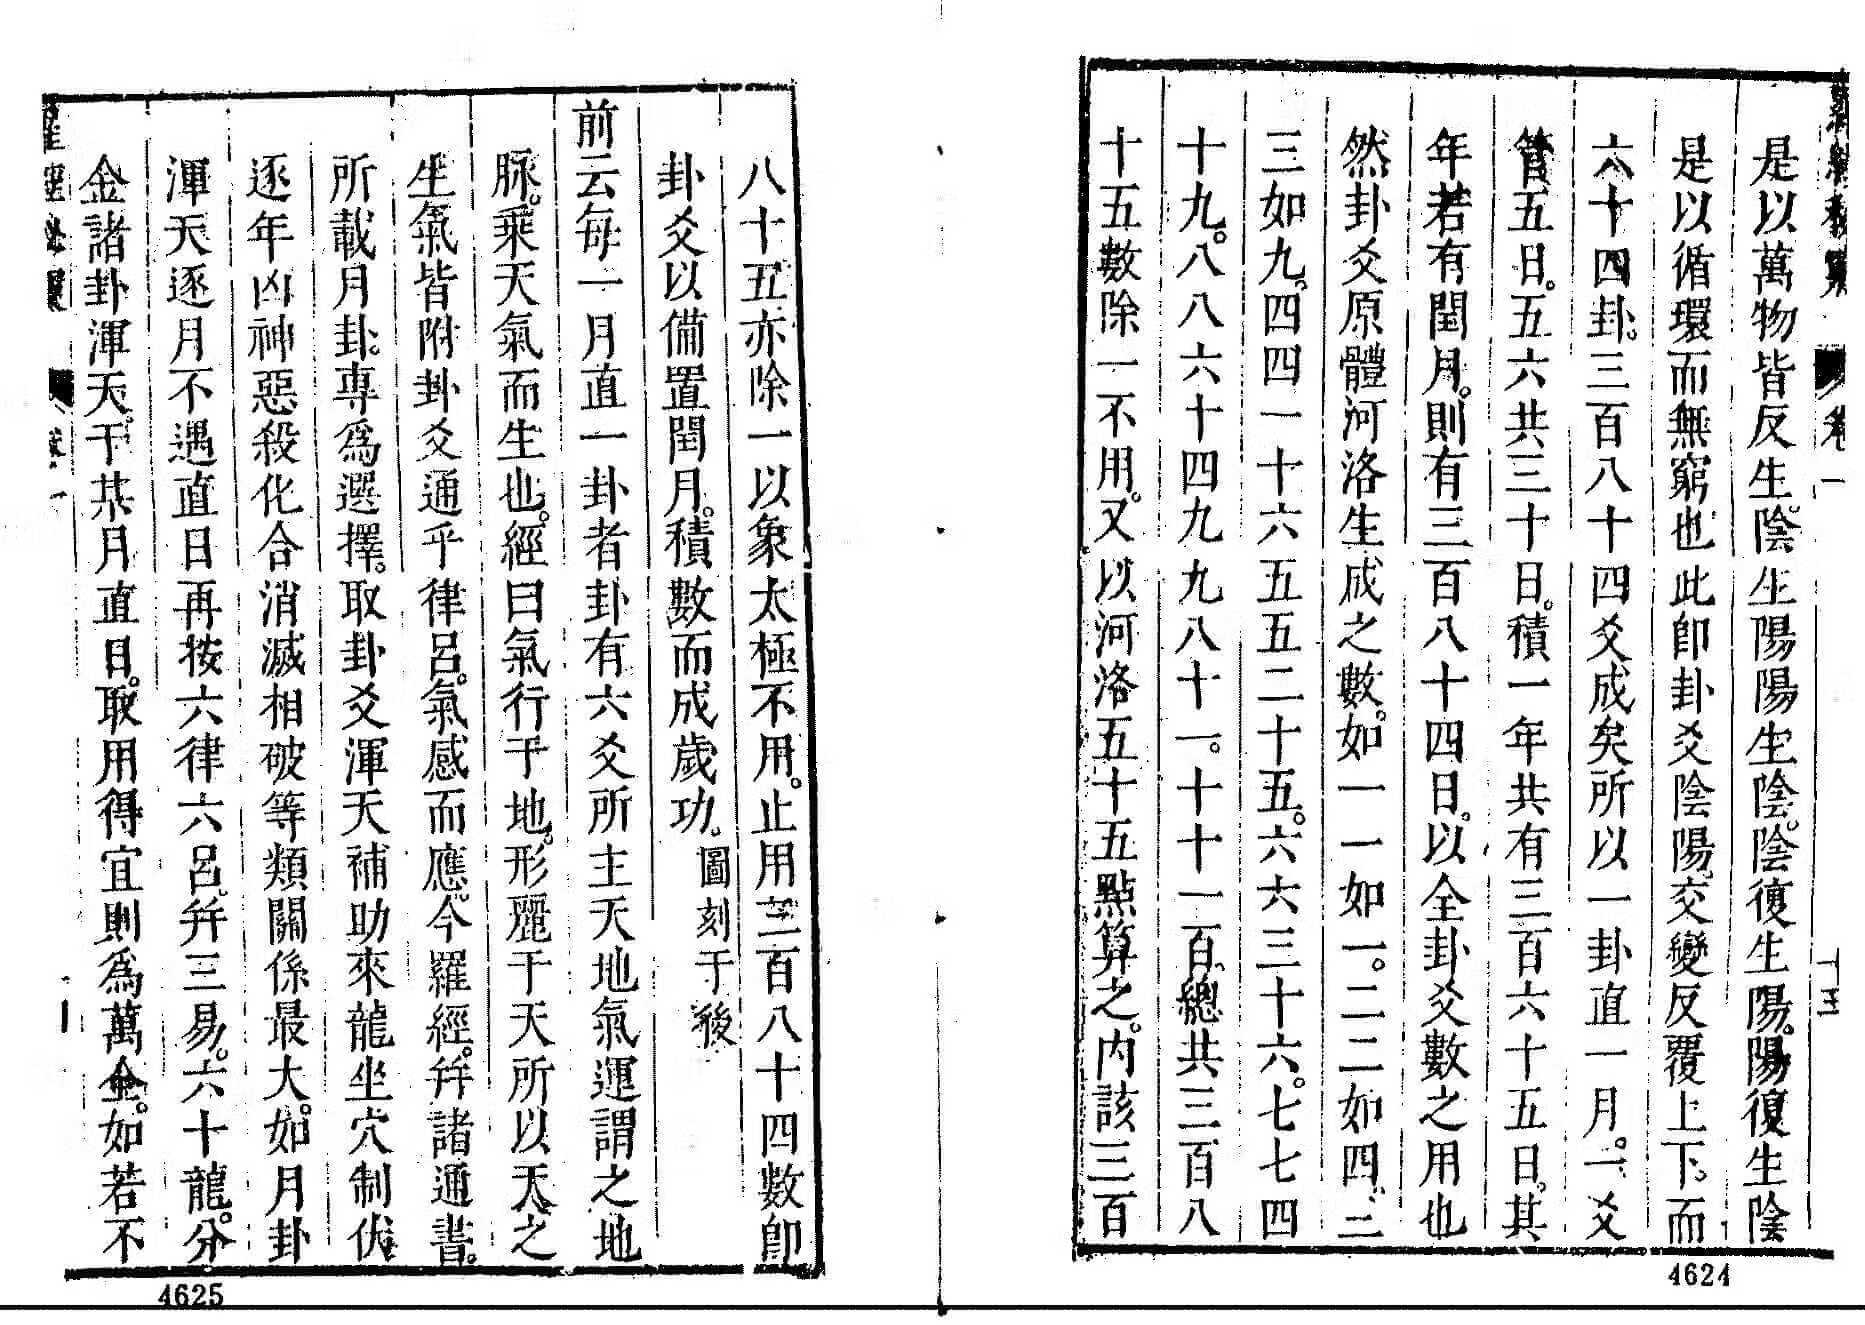 是以萬物皆反生。陰生陽陽生陰。陰復生陽。陽復生陰
是以循環而無窮也此卽卦爻陰陽。交變反覆上下。而
六十四卦。三百八十四爻成矣所以一卦直一月。一爻
管五日。五六共三十日。積一年共有三百六十五日。其
年若有閏月。則有三百八十四日。以全卦爻數之用也
然卦爻原體河洛生成之數。如一一如一。二二如四、三
三如九。四四一十六五五二十五。六六三十六。七七四
十九。八八六十四九九八十一。十十一百。總共三百八
十五數除一不用。又以河洛五十五點算之。內該三百
卷一
十三
4624
八十五亦除一以象太極不用。止用三百八十四數卽
卦爻以備置閏月。積數而成歲功。圖刻于後
前云每一月直一卦者卦有六爻所主天地氣運謂之地
脉。乘天氣而生也。經曰氣行于地。形麗于天所以天之
生氣皆附卦爻通乎律呂。氣感而應。今羅經。幷諸通書。
所載月卦。專爲選擇。取卦爻渾天補助來龍坐穴制伏
逐年凶神惡殺化合消滅相破等類關係最大。如月卦
渾天逐月不遇直日再按六律六呂。幷三易。六十龍。分
金諸卦渾天。干某月直日。取用得宜則爲萬全。如若不
4625